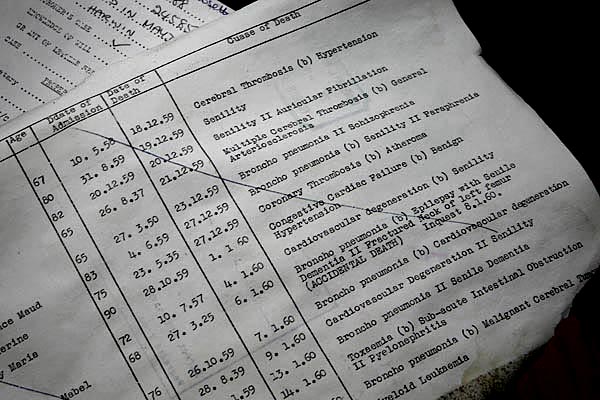 IN MAU
24585
HARWIN
Age
Date of
Admission
Date of
Death
Cause of Death
67
80
82
65
65
83
75
90
72
68
76
31. 8.59
20.12.59
26. 8.37
27. 3.50
4. 6.59
23. 5.35
28.10.59
10. 7.57
27. 3.25
26.10.59
28. 8.39
1.59
18.12.59
19.12.59
20.12.59
21.12.59
23.12.59
27.12.59
27.12.59
1. 1 60
4. 1.60
6. 1.60
7. 1.60
9. 1.60
13. 1.60
14. 1.60
Cerebral Thrombosis (b) Hypertension
Senility
Senility II Auricular Fibrillation
Multiple Cerebral Thrombosis (b) General
Arteriosclerosis
Broncho pneumonia II Schizophrenia
Broncho pneumonia (b) Senility II Paraphrenia
Coronary Thrombosis (b) Atheroma
Congestive Cardiac Failure (b) Benign
Hypertension
Cardiovascular degeneration (b) Senility
Broncho pneumonia (b) Epilepsy with Senile
Dementia II Fractured Neck of left femur
(ACCIDENTAL DEATH) Inquest 8.1.60.
Broncho pneumonia (b) Cardiovascular degeneration
Cardiovascular Degeneration II Senility
Broncho pneumonia II Senile Dementia
Toxaemia (b) Sub-acute Intestinal Obstruction
II Pyelonephritis
Broncho pneumonia (b) Malignant Cerebral
Myeloid Leukaemia
Maud
Marie
Mabel